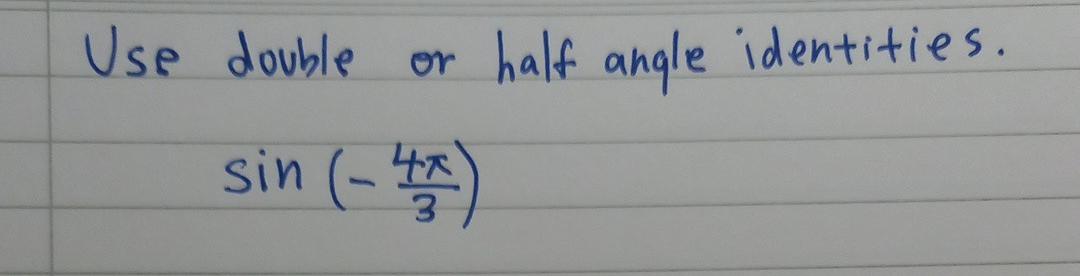 Use double or half angle identities.
sin (- 4π/3)